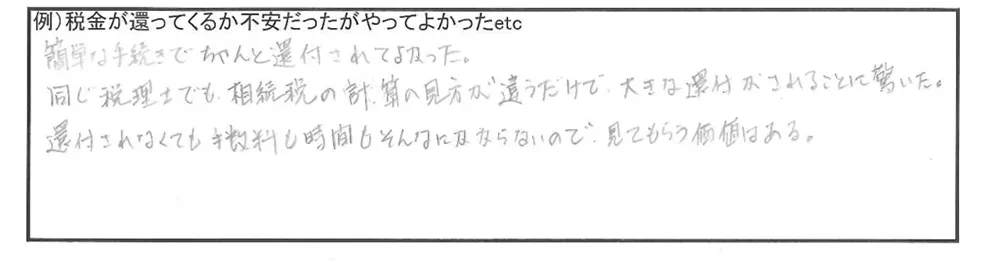 例）税金が還ってくるか不安だったがやってよかったetc
簡単な手続きでちゃんと還付されてよかった。
同じ税理士でも、相続税の計算の見方が違うだけで、大きな還付がされることに驚いた。
還付されなくても手数料も時間もそんなにかからないので、見てもらう価値はある。